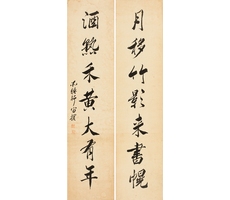 月移竹影来書幌
酒熟禾黄大有年